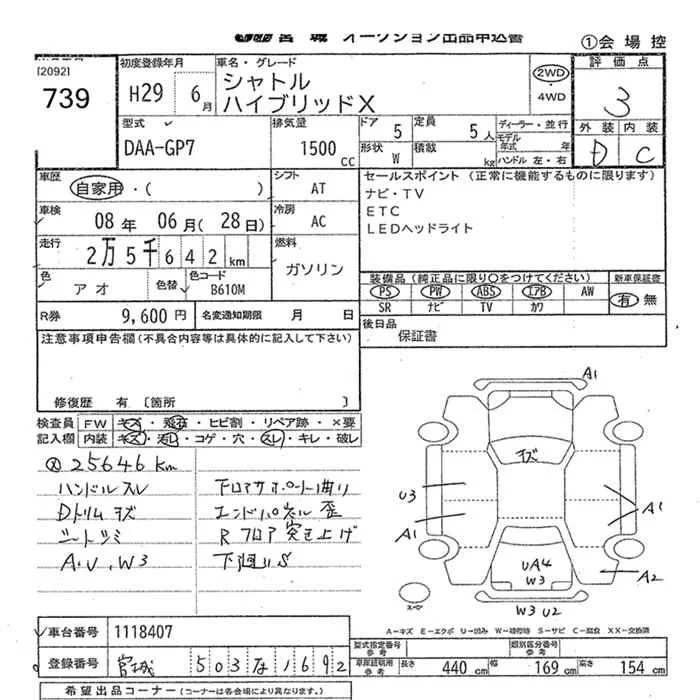 宮城 オークション出品申込書
①会場控
[2092]
739
初度登録年月
H29 6月
車名・グレード
シャトル
ハイブリッドX
2WD
4WD
評価点
3
外装 内装
D C
型式
DAA-GP7
排気量
1500 CC
ドア 5
定員 5人
形状 W
積載 kg
ディーラー・並行
モデル年式 年
ハンドル 左・右
車歴
自家用・( )
シフト AT
車検
08年 06月(28日)
冷房 AC
走行
2万5千642km
燃料
ガソリン
色 アオ
色替
色コード
B610M
セールスポイント(正常に機能するものに限ります)
ナビ・TV
ETC
LEDヘッドライト
装備品(純正品に限り○をつけてください)
新車保証書
PS PW ABS エアB AW
SR ナビ TV カワ
有・無
R券 9,600円
名変通知期限 月 日
後日品
保証書
注意事項申告欄(不具合内容等は具体的に記入して下さい)
修復歴 有〔箇所 〕
検査員
記入欄
FW キズ・飛石・ヒビ割・リペア跡・×要
内装 キズ・汚レ・コゲ・穴・スレ・キレ・破レ
25646km
ハンドルスレ
Dトリムキズ
シートシミ
A.U.W3
フロアサポート曲り
エンドパネル歪
Rフロア突き上げ
下廻りS
A1
キズ
U3
A1
A1
A2
UA4
W3
W3 U2
スペア
A-キズ E-エクボ U-凹み W-補修跡 S-サビ C-腐食 XX-交換済
車台番号 1118407
登録番号 宮城 503 な 1692
型式指定番号 参考
類別区分番号 参考
車庫証明用 参考
長さ 440cm 幅 169cm 高さ 154cm
希望出品コーナー(コーナーは各会場により異なります。)